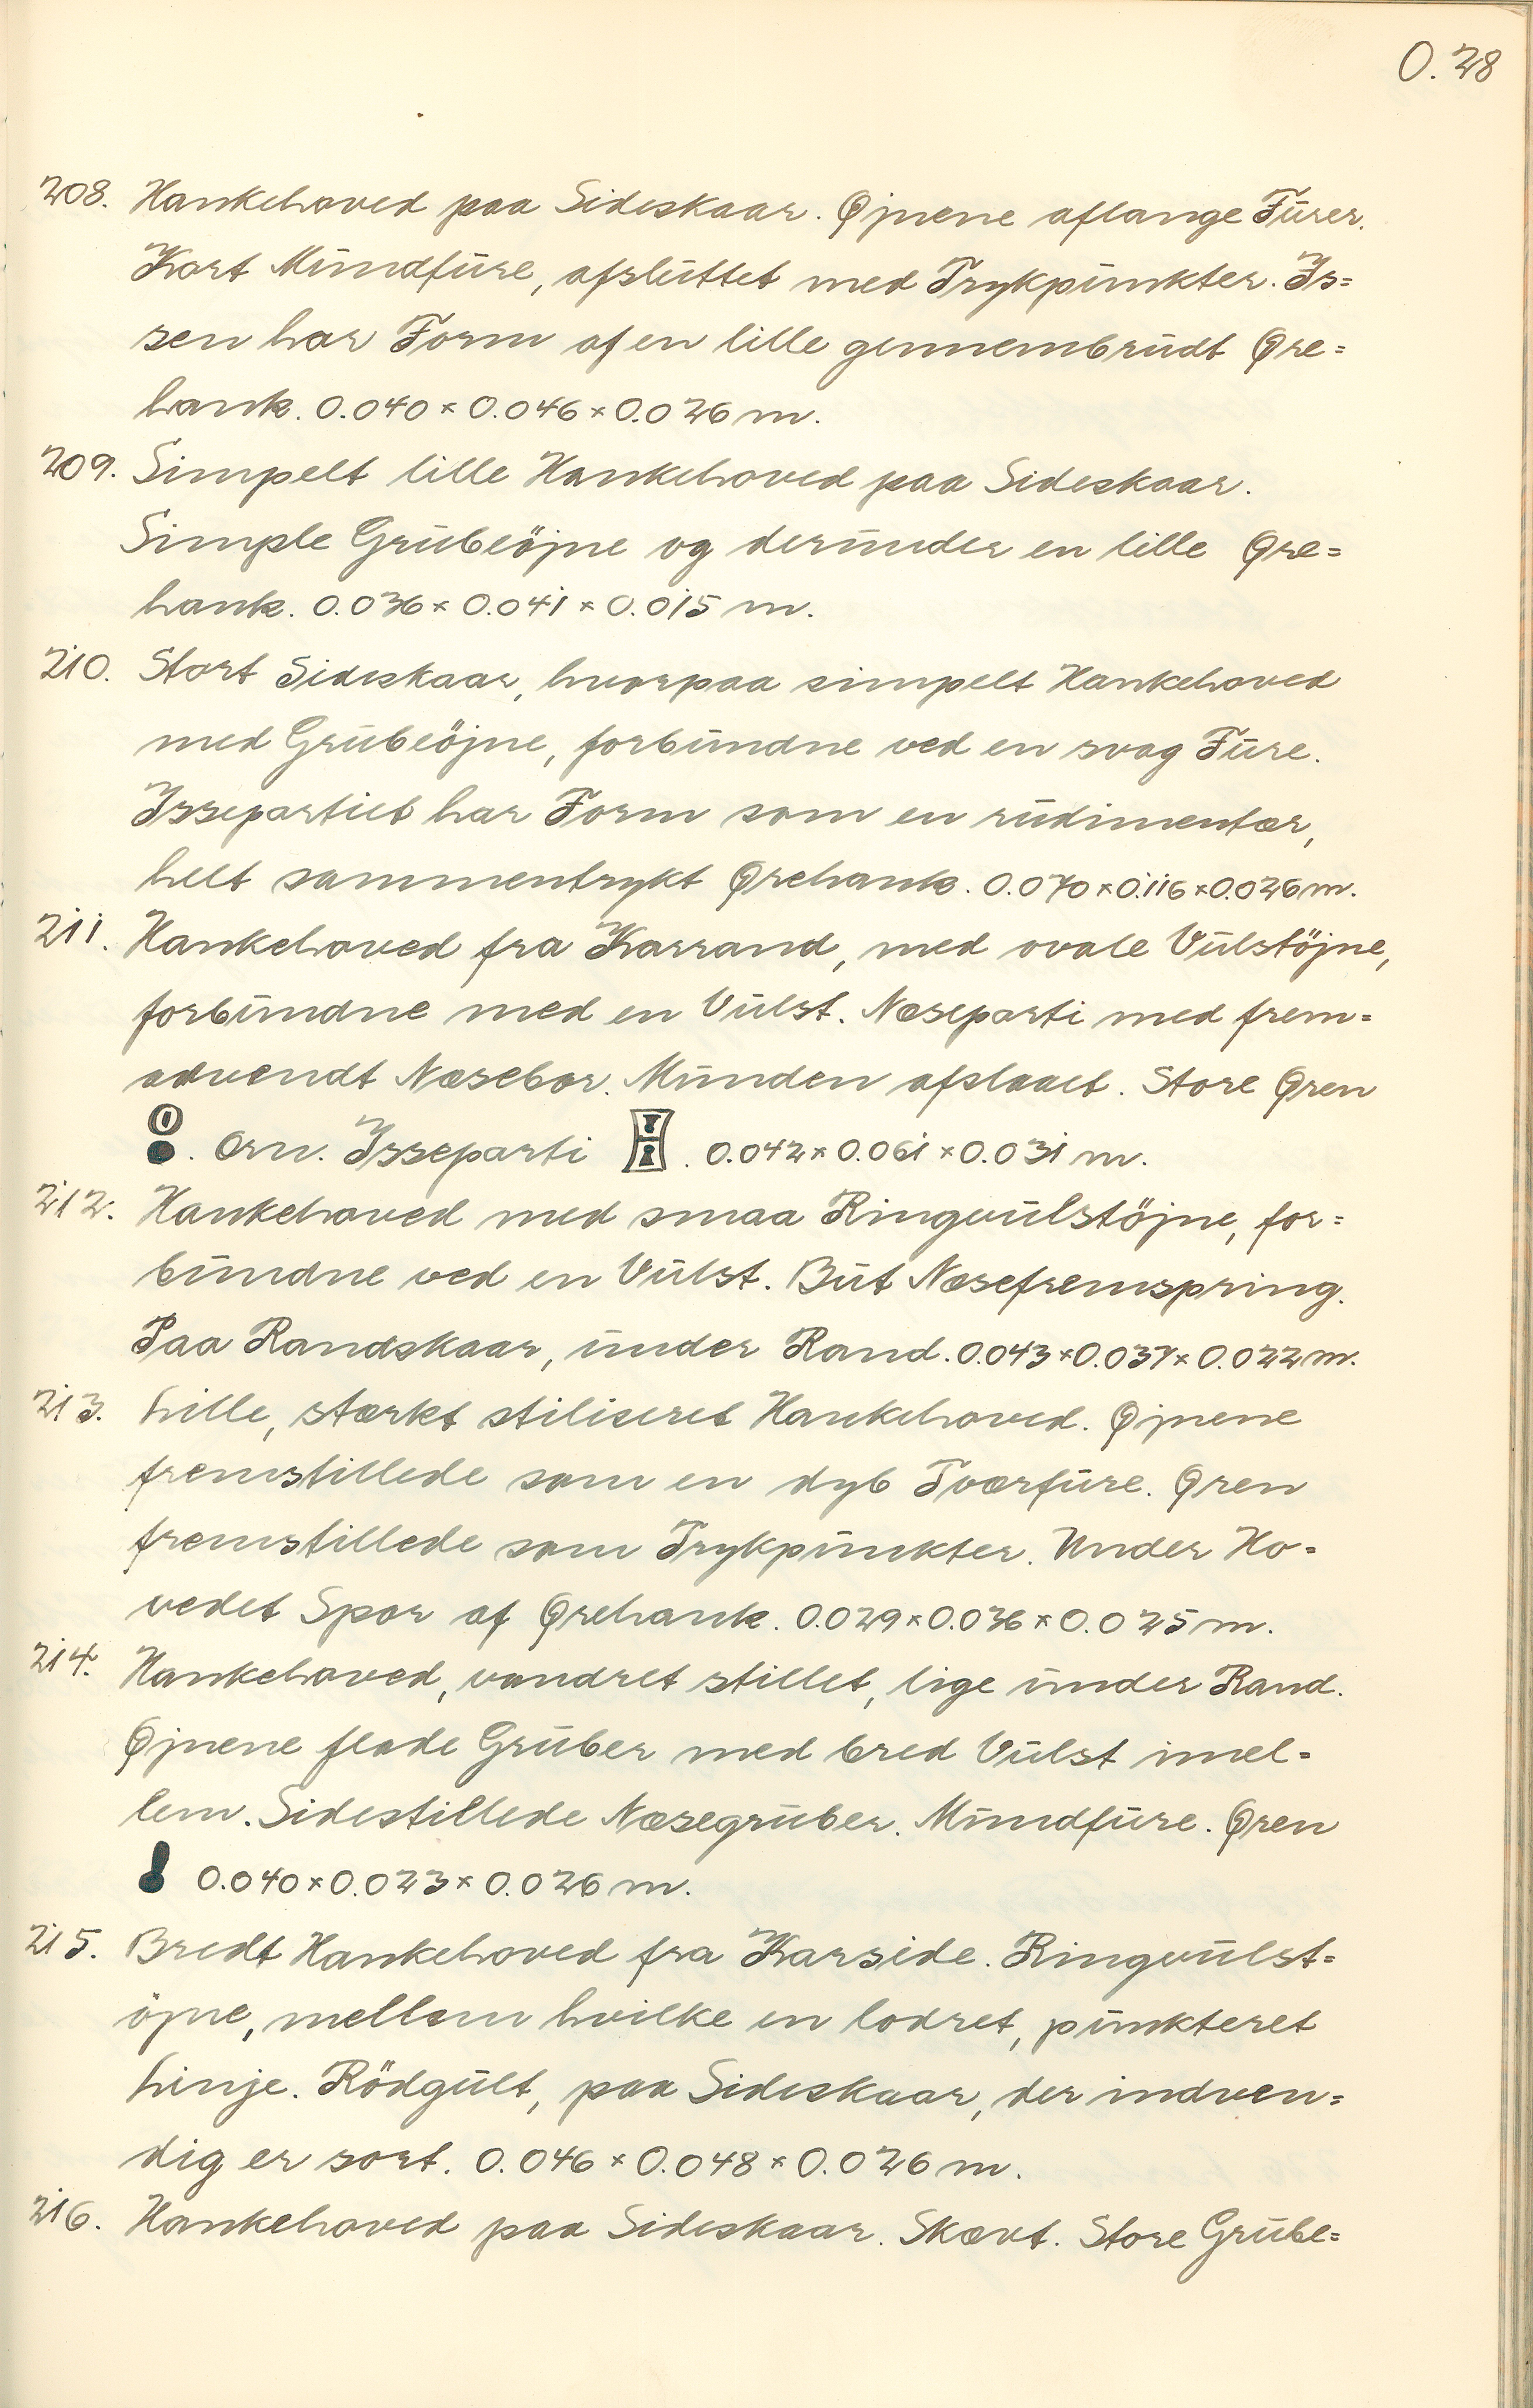 O. 28
208. Hankehoved paa Sideskaar. Øjnene aflange Furer.
Kort Mundfure, afsluttet med Trykpunkter. Is=
sen har Form af en lille gennembrudt Øre=
hank. 0.040 × 0.046 × 0.026 m.
209. Simpelt lille Hankehoved paa Sideskaar.
Simple Grubeöjne og derunder en lille Øre=
hank. 0.036 × 0.041 × 0.015 m.
210. Stort Sideskaar, hvorpaa simpelt Hankehoved
med Grubeöjne, forbundne ved en svag Fure.
Issepartiet har Form som en rudimentær,
helt sammentrykt Ørehank. 0.070 × 0.116 × 0.026 m.
211. Hankehoved fra Karrand, med ovale Vulstöjne,
forbundne med en Vulst. Næseparti med frem=
advendt Næsebor. Munden afslaaet. Store Øren
. Orn. Isseparti . 0.042 × 0.061 × 0.031 m.
212. Hankehoved med smaa Ringvulstöjne, for=
bundne ved en Vulst. But Næsefremspring.
Paa Randskaar, under Rand. 0.043 × 0.037 × 0.022 m.
213. Lille, stærkt stiliseret Hankehoved. Øjnene
fremstillede som en dyb Tværfure. Øren
fremstillede som Trykpunkter. Under Ho=
vedet Spor af Ørehank. 0.029 × 0.036 × 0.025 m.
214. Hankehoved, vandret stillet, lige under Rand.
Øjnene flade Gruber med bred Vulst imel=
lem. Sidestillede Næsegruber. Mundfure. Øren
0.040 × 0.023 × 0.026 m.
215. Bredt Hankehoved fra Karside. Ringvulst=
öjne, mellem hvilke en lodret, punkteret
Linje. Rödgult, paa Sideskaar, der indven=
dig er sort. 0.046 × 0.048 × 0.026 m.
216. Hankehoved paa Sideskaar. Skævt. Store Grube=